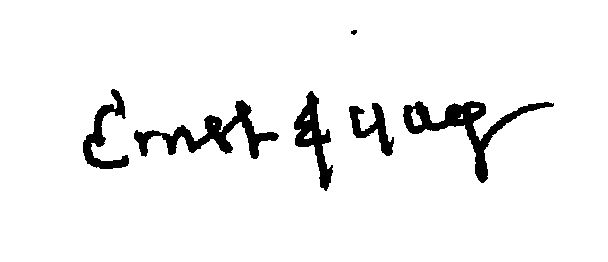 Ernst & Young